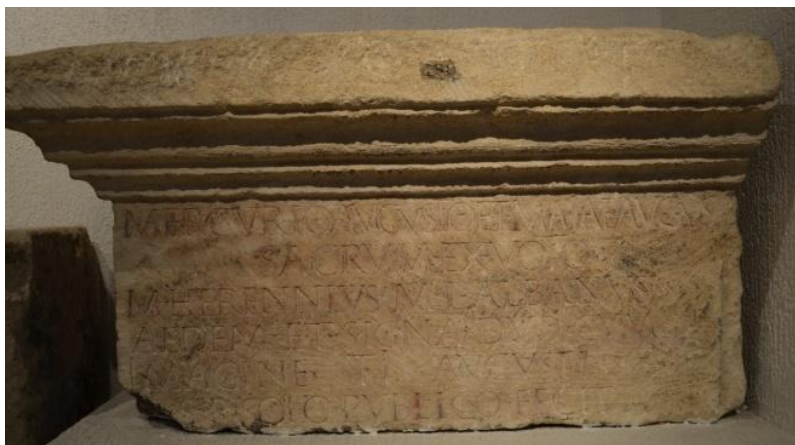 MERCVRIO AVGVSTO ET MAIAE
SACRVM EX VOTO
M HERENNIVS M L ALBANVS
AEDEM ET SIGNA DVO CVM
IMAGINE TI AVGVSTI
SOLO PVBLICO FECIT